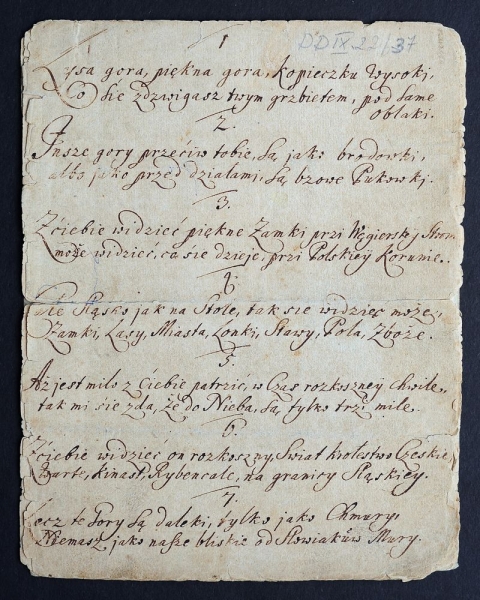 1 DD IX 22/37
Łysa gora, piękna gora, kopieczku wysoki,
Co sie zdzwigasz twym grzbietem, pod same
obłaki.
2.
Insze gory przećiw tobie, są jako brodowki,
albo jako przed działami, są bzowe Pukowkj.
3.
Zćiebie widzieć piękne Zamki przi Węgierskÿ Stron,
może widzieć, co sie dzieje, przi Polskieÿ Korunie.
4.
Śląsko jak na Stole, tak sie widzieć może,
Zamki, Lasy, Miasta, Lonki, Stawy, Pola, Zboże.
5.
Aż jest miło z Ćiebie patrzić, w Czas rozkoszneÿ Chwile,
tak mi sie zda, że do Nieba, są tylko trzi mile.
6.
Zćiebie widzieć on rozkoszny, Swiat krolestwo Czeskie
Warte, Kinast, Rybencale, na granicy Śląskieÿ.
7.
Lecz te Gory są daleki, tylko jako Chmury,
Niemasz jako nasze bliskie od Słowiakůw Mury.